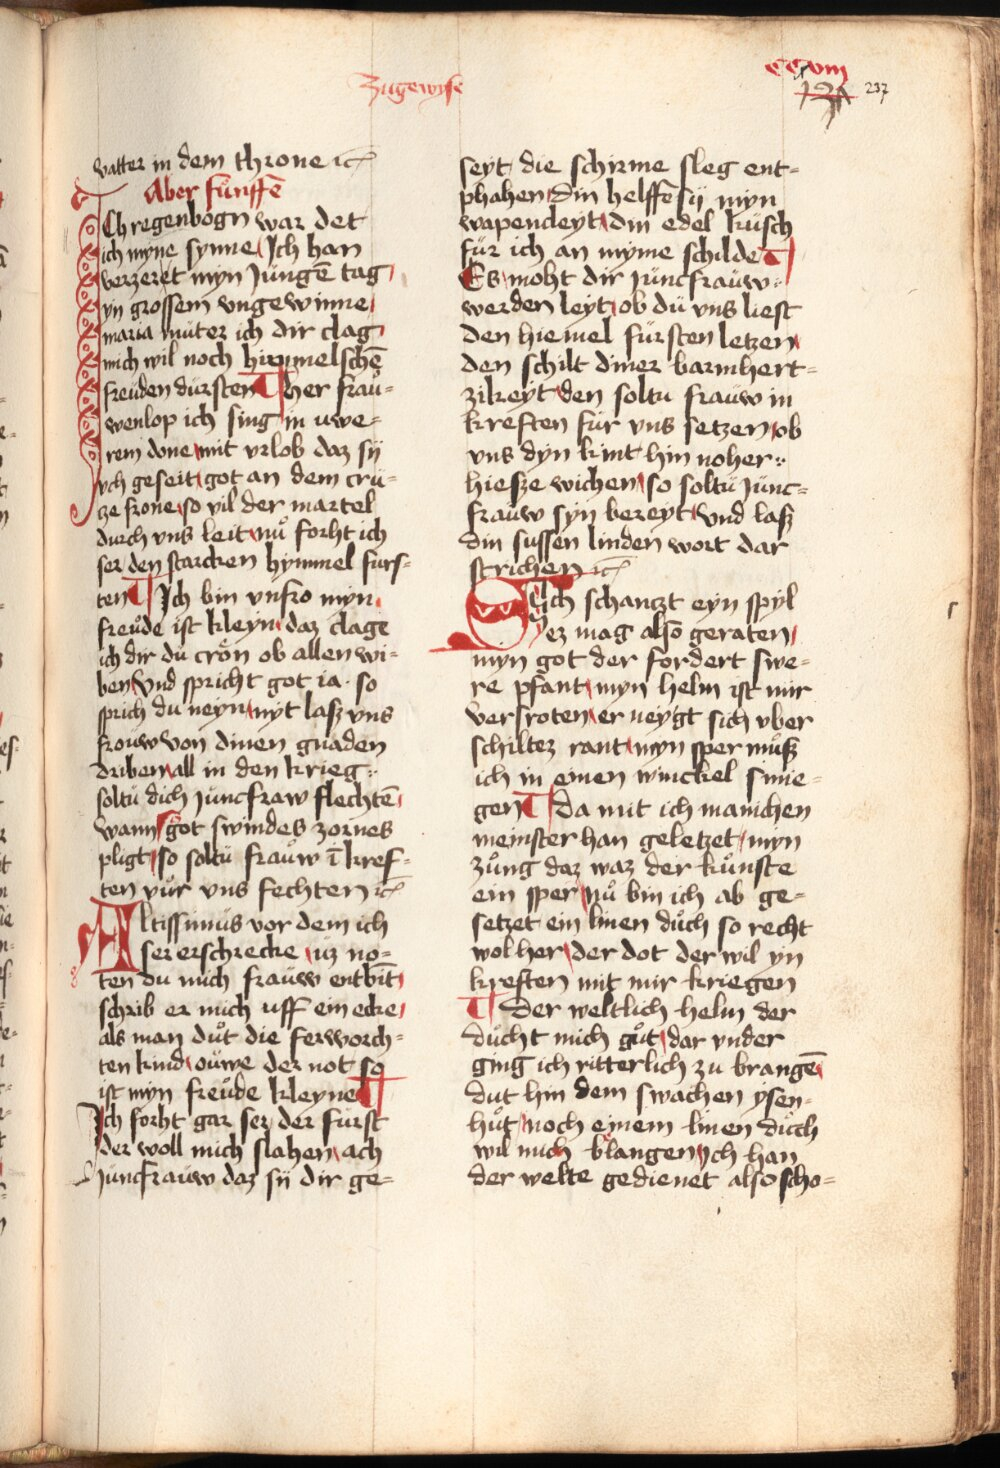 Zugewyse
ccviii
237
vatter in dem throne ꝛc
Aber funffē
ICh regenbogn war det
ich myne synne Ich han
verzeret myn Jungē tag
yn grossem vngewinne
maria muter ich dir clag
mich wil noch hymmelschē
freuden dursten her frau-
wenlop ich sing in uwe-
rem done mit vrlob daz sy
vch geseit got an dem cru-
ze frone so vil der martel
durch vns leit nů forht ich
ser den starcken hymmel furs-
ten Ich bin vnfro myn
freůde ist kleyn daz clage
ich dir du crőn ob allen wi-
ben Vnd spricht got ia so
sprich du neyn nyt lasz vns
frouw von dinen gnaden
driben all in den krieg
soltu dich Juncfraw flechtē
wann got swindes zornes
pligt so soltu frauw ī kref-
ten vur vns fechten ꝛc
ALtissimus vor dem ich
ser erschrecke uz no-
ten du mich frauw entbīt
schrib er mich uff ein ecke
als man důt die ferworch-
ten kind ouwe der not so
ist myn freůde kleyne
Ich forht gar ser der furst
der woll mich slahen ach
Juncfrauw daz sy dir ge-
seyt die schirme sleg ent-
phahen din helffē sy myn
wapencleyt din edel kusch
fur ich an myme schilde
Es moht dir Juncfrauw
werden leyt ob du vns liest
den hiemel fursten letzen
den schilt diner barmhert-
zikeyt den soltu frauw in
kreften fur vns setzen ob
vns dyn kint hin noher
hiesze wichen so soltu Junc-
frauw syn bereyt Vnd lasz
din sussen linden wort dar
strichen ꝛc
SIch schanczt eyn spyl
ez mag also geraten
myn got der fordert swe-
re pfant myn helm ist mir
versroten er neygt sich vber
schiltez rant myn sper můsz
ich in einen winckel smie-
gen da mit ich manichen
meinster han geletzet myn
zůng daz waz der kůnste
ein sper nů bin ich ab ge-
setzet ein linen důch so recht
wol her der dot der wil yn
kreften mit mir kriegen
Der weltlich helm der
důcht mich gůt dar vnder
ging ich ritterlich zu brangē
dut hin dem swachen ysen-
hůt noch einem linen důch
wil mich blangen ich han
der welte gedienet also scho-